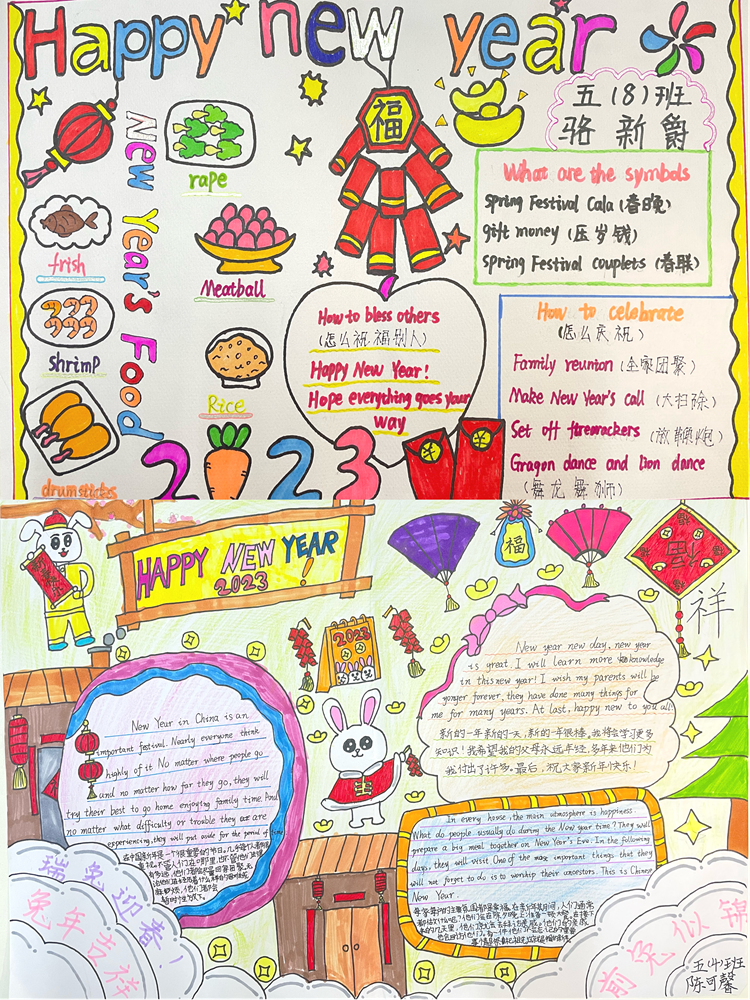 Happy new year
五(8)班
骆新爵
New Year's Food
rape
frish
Meatball
shrimp
Rice
drumsticks
福
What are the symbols
Spring Festival Cala (春晚)
gift money (压岁钱)
Spring Festival couplets (春联)
How to bless others
(怎么祝福别人)
Happy New Year!
Hope everything goes your
way
How to celebrate
(怎么庆祝)
Family reunion (全家团聚)
Make New Year's call (大扫除)
Set off firecrackers (放鞭炮)
Gragon dance and lion dance
(舞龙舞狮)
2023
HAPPY NEW YEAR
2023 !
福
福
祥
2023
New year new day, new year
is great. I will learn more knowledge
in this new year! I wish my parents will be
yonger forever, they have done many things for
me for many years. At last, happy new to you all
新的一年新的一天,新的一年很棒,我将会学习更多
知识!我希望我的父母永远年轻,多年来他们为
我付出了许多。最后,祝大家新年快乐!
New Year in China is an
important festival. Nearly everyone think
highly of it No matter where people go
and no matter how far they go, they will
try their best to go home enjoying family time. And
no matter what difficulty or trouble they are
experiencing, they will put aside for the period of time
In every house, the main atmosphere is happiness.
What do people usually do during the New year time? They will
prepare a big meal together on New Year's Eve. In the following
days, they will visit One of the most important things that they
will not forget to do is to worship their ancestors. This is Chinese
New Year.
瑞兔迎春!
兔年吉祥
前兔似锦
五(4)班
陈可馨